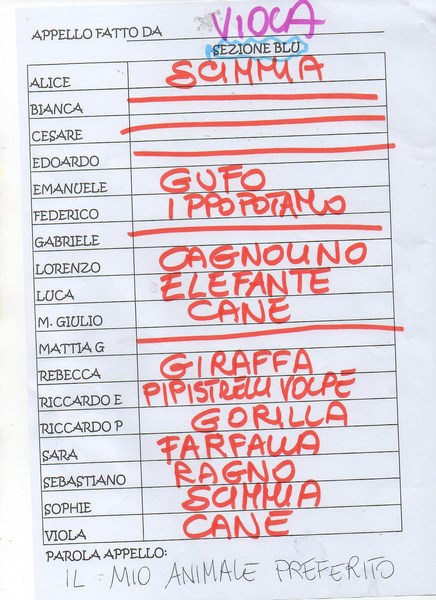 APPELLO FATTO DA VIOLA
SEZIONE BLU
ALICE SCIMMIA
BIANCA
CESARE
EDOARDO
EMANUELE GUFO
FEDERICO IPPOPOTAMO
GABRIELE
LORENZO CAGNOLINO
LUCA ELEFANTE
M. GIULIO CANE
MATTIA G
REBECCA GIRAFFA
RICCARDO E PIPISTRELLI VOLPE
RICCARDO P GORILLA
SARA FARFALLA
SEBASTIANO RAGNO
SOPHIE SCIMMIA
VIOLA CANE
PAROLA APPELLO:
IL MIO ANIMALE PREFERITO